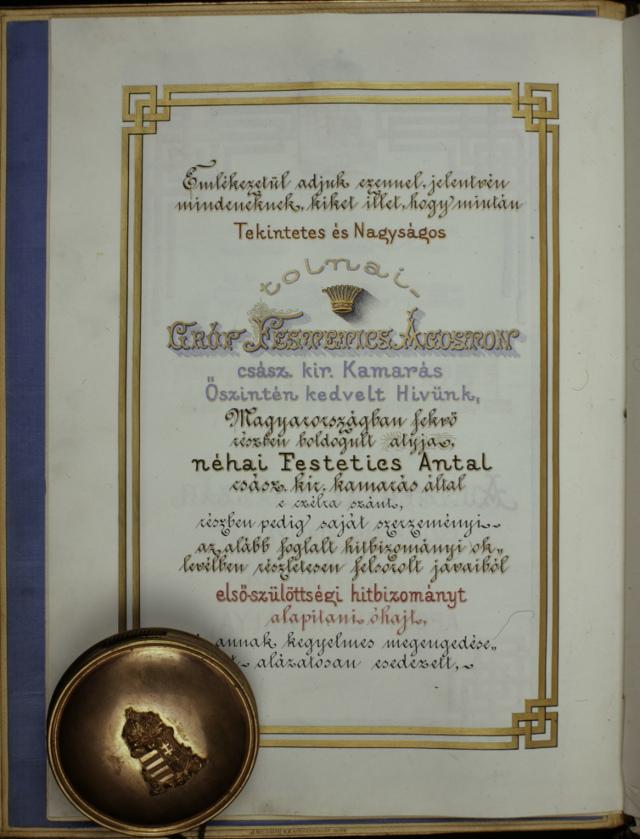 Emlékezetül adjuk ezennel, jelentvén
mindeneknek, kiket illet, hogy mintán
Tekintetes és Nagyságos
tolnai-
Gróf Festetics Ágoston
csász. kir. Kamarás
Őszintén kedvelt Hivünk,
Magyarországban fekvő
részben boldogult atyja,
néhai Festetics Antal
csász. kir. kamarás által
e czélra szánt,
részben pedig saját szerzeményi
az alább foglalt hitbizományi ok„
levélben részletesen felsorolt javaiból
első-szülöttségi hitbizományt
alapitani óhajt,
annak kegyelmes megengedése„
alázatosan esedezett,